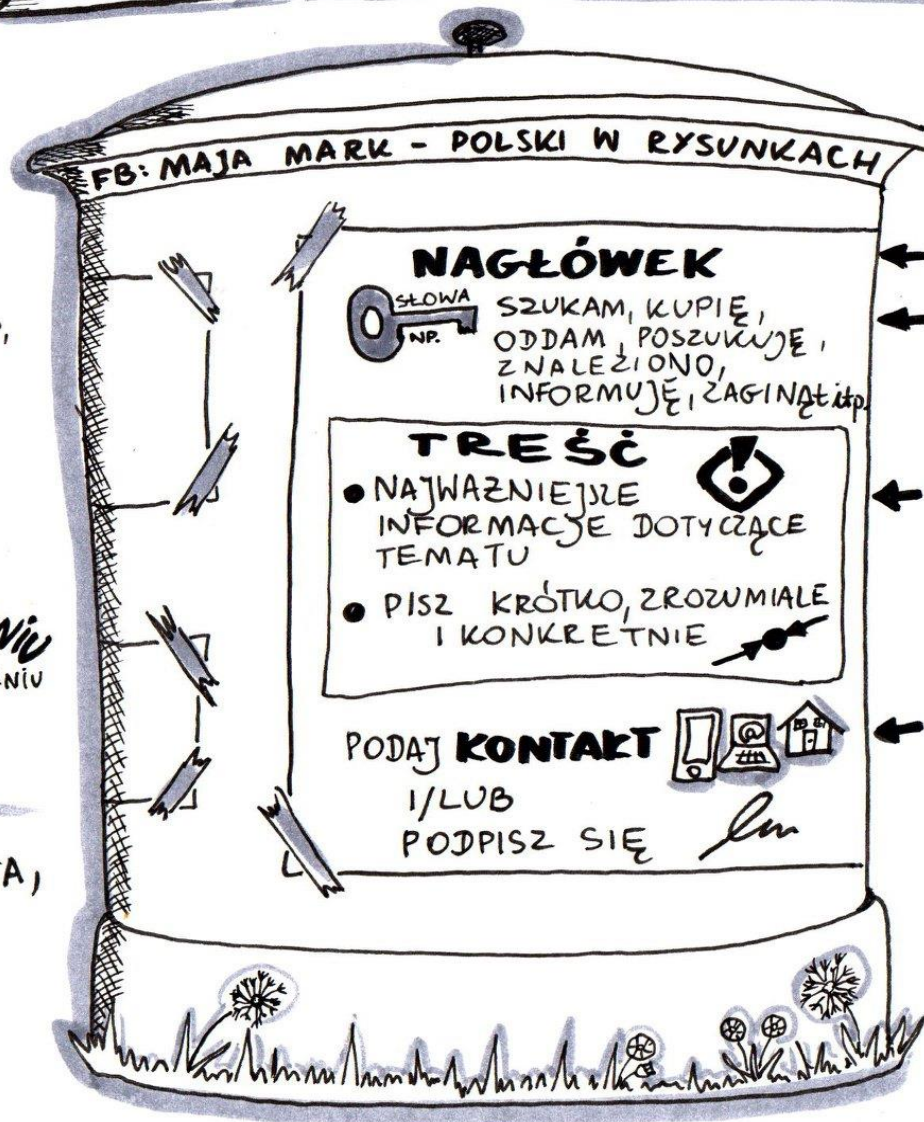 FB: MAJA MARK - POLSKI W RYSUNKACH
NAGŁÓWEK
SŁOWA
NP.
SZUKAM, KUPIĘ,
ODDAM, POSZUKUJĘ,
ZNALEZIONO,
INFORMUJĘ, ZAGINĄŁ itp.
TREŚĆ
• NAJWAŻNIEJSZE
INFORMACJE DOTYCZĄCE
TEMATU
• PISZ KRÓTKO, ZROZUMIALE
I KONKRETNIE
PODAJ KONTAKT
@
I/LUB
PODPISZ SIĘ